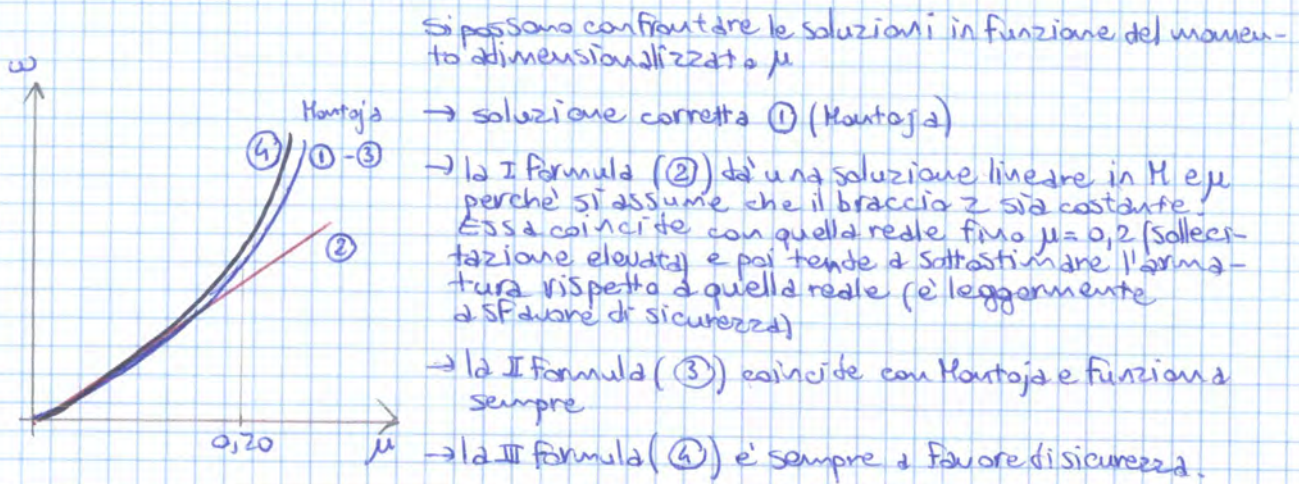 si possono confrontare le soluzioni in funzione del momen-
to adimensionalizzato μ
ω
Montoja
→ soluzione corretta ① (Montoja)
④ ① - ③
→ la I formula (②) dà una soluzione lineare in M e μ
perchè si assume che il braccio z sia costante.
Essa coincide con quella reale fino μ = 0,2 (solleci-
②
tazione elevata) e poi tende a sottostimare l'arma-
tura rispetto a quella reale (è leggermente
a sfavore di sicurezza)
→ la II formula (③) coincide con Montoja e funziona
sempre
0,20
μ
→ la III formula (④) è sempre a favore di sicurezza.